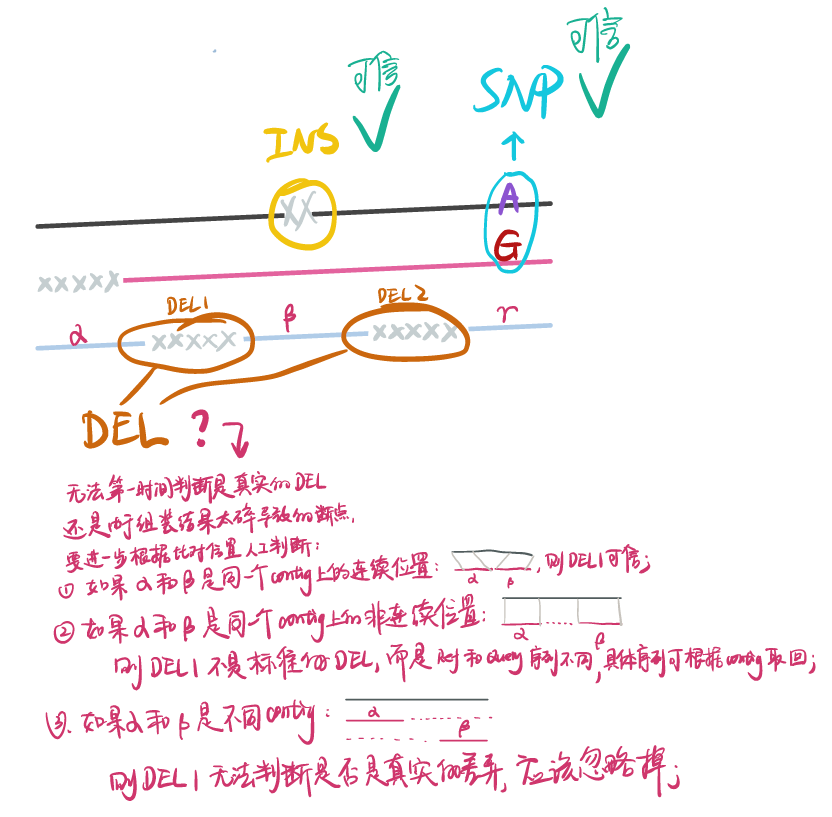 可信
可信
SNP
INS
XX
A
G
XXXXX
DEL1
DEL2
α
XXXXX
β
XXXXX
r
DEL ?
无法第一时间判断是真实的DEL
还是由于组装结果太碎导致的断点,
要进一步根据比对位置人工判断:
① 如果 α 和 β 是同一个contig上的连续位置: α β ,则DEL1可信;
② 如果 α 和 β 是同一个contig上的非连续位置: α β
则DEL1不是标准的DEL,而是Ref和Query序列不同,具体序列可根据contig取回;
③. 如果 α 和 β 是不同contig: α β
则DEL1无法判断是否是真实的差异,应该忽略掉;